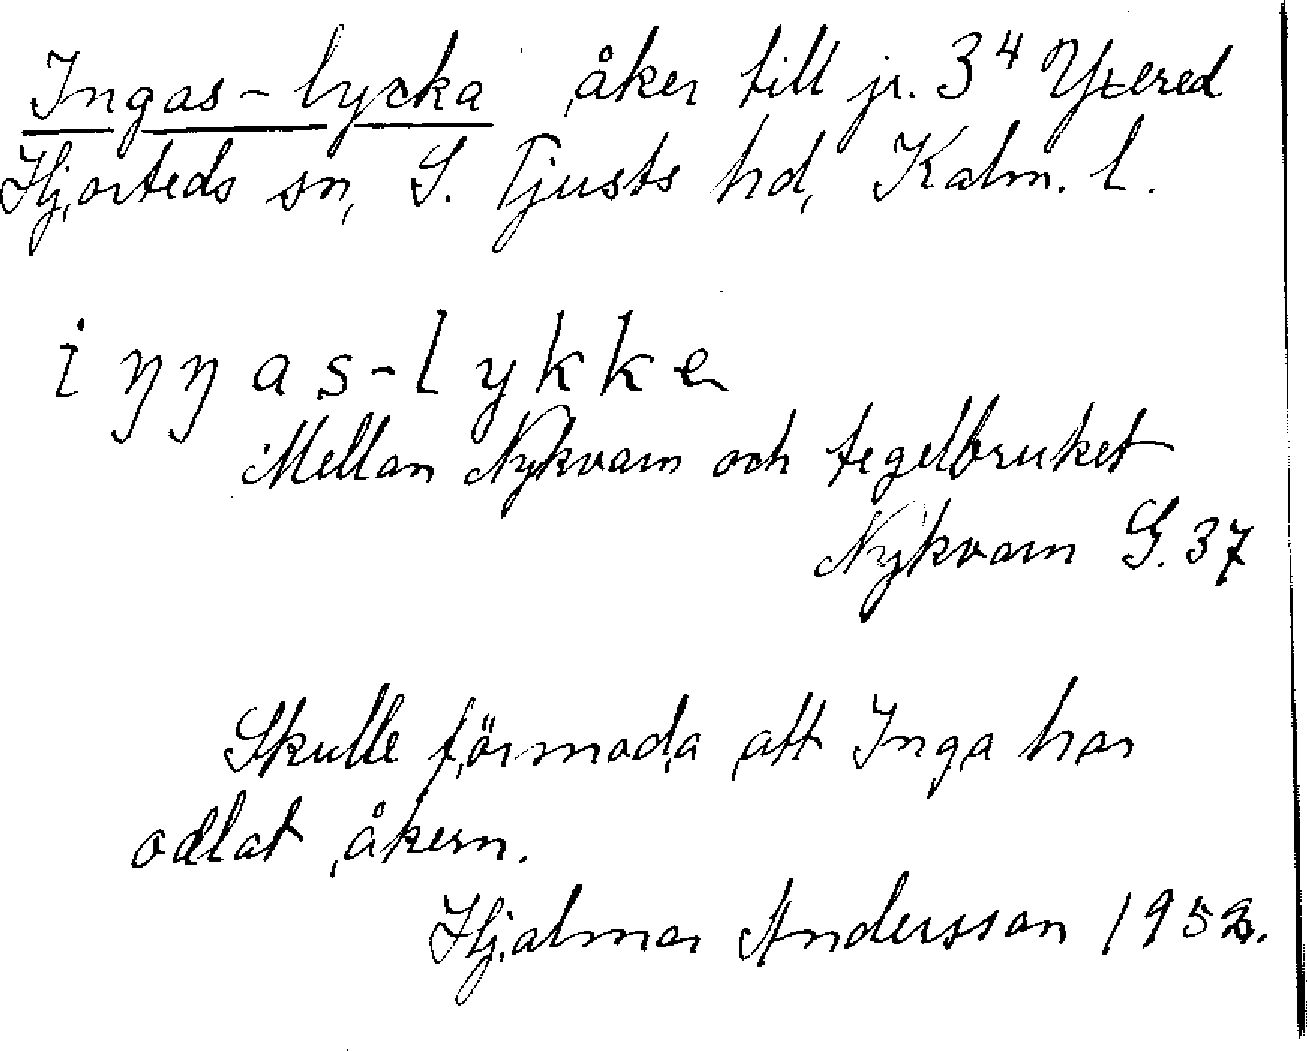 Ingas-lycka åker till jr. 3⁴ Yxered
Hjorteds sn, S. Tjusts hd, Kalm. l.
iŋŋas-lykke
Mellan Nykvarn och tegelbruket
Nykvarn G. 37
Skulle förmoda att Inga har
odlat åkern.
Hjalmar Andersson 1952.